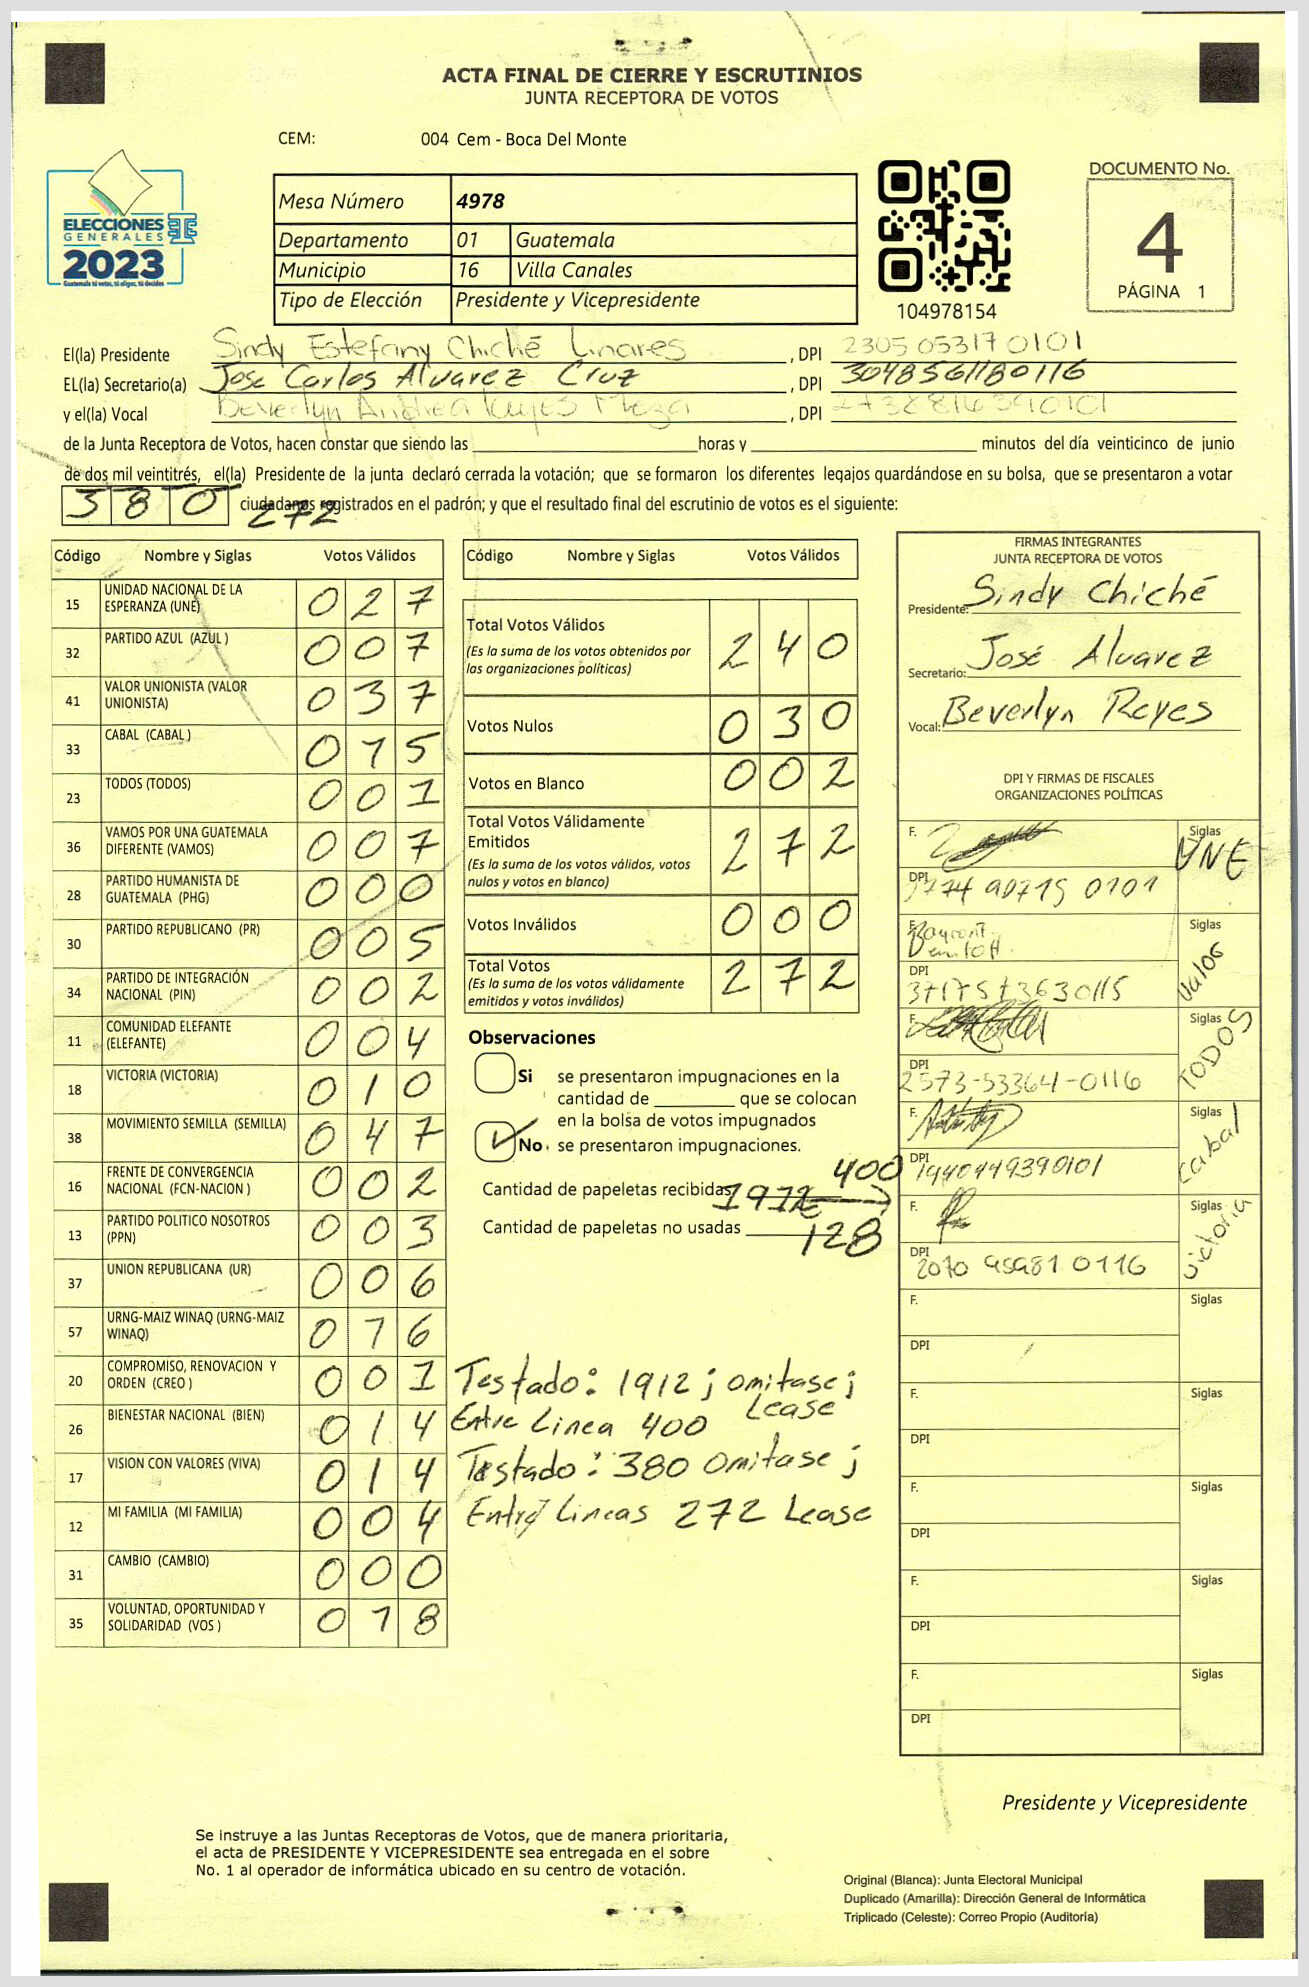 ACTA FINAL DE CIERRE Y ESCRUTINIOS
JUNTA RECEPTORA DE VOTOS
CEM: 004 Cem - Boca Del Monte
ELECCIONES
GENERALES
2023
Guatemala tú votas, tú eliges, tú decides
Mesa Número 4978
Departamento 01 Guatemala
Municipio 16 Villa Canales
Tipo de Elección Presidente y Vicepresidente
104978154
DOCUMENTO No.
4
PÁGINA 1
El(la) Presidente Sindy Estefany Chiché Linares , DPI 2305 05317 0101
EL(la) Secretario(a) Jose Carlos Alvarez Cruz , DPI 3048561180116
y el(la) Vocal Beverlyn Andrea Reyes , DPI
de la Junta Receptora de Votos, hacen constar que siendo las horas y minutos del día veinticinco de junio
de dos mil veintitrés, el(la) Presidente de la junta declaró cerrada la votación; que se formaron los diferentes legajos guardándose en su bolsa, que se presentaron a votar
380 ciudadanos registrados en el padrón; y que el resultado final del escrutinio de votos es el siguiente:
272
Código Nombre y Siglas Votos Válidos
15 UNIDAD NACIONAL DE LA ESPERANZA (UNE) 027
32 PARTIDO AZUL (AZUL ) 007
41 VALOR UNIONISTA (VALOR UNIONISTA) 037
33 CABAL (CABAL ) 015
23 TODOS (TODOS) 001
36 VAMOS POR UNA GUATEMALA DIFERENTE (VAMOS) 007
28 PARTIDO HUMANISTA DE GUATEMALA (PHG) 000
30 PARTIDO REPUBLICANO (PR) 005
34 PARTIDO DE INTEGRACIÓN NACIONAL (PIN) 002
11 COMUNIDAD ELEFANTE (ELEFANTE) 004
18 VICTORIA (VICTORIA) 010
38 MOVIMIENTO SEMILLA (SEMILLA) 047
16 FRENTE DE CONVERGENCIA NACIONAL (FCN-NACION ) 002
13 PARTIDO POLITICO NOSOTROS (PPN) 003
37 UNION REPUBLICANA (UR) 006
57 URNG-MAIZ WINAQ (URNG-MAIZ WINAQ) 016
20 COMPROMISO, RENOVACION Y ORDEN (CREO ) 001
26 BIENESTAR NACIONAL (BIEN) 014
17 VISION CON VALORES (VIVA) 014
12 MI FAMILIA (MI FAMILIA) 004
31 CAMBIO (CAMBIO) 000
35 VOLUNTAD, OPORTUNIDAD Y SOLIDARIDAD (VOS ) 018
Código Nombre y Siglas Votos Válidos
Total Votos Válidos 240
(Es la suma de los votos obtenidos por
las organizaciones políticas)
Votos Nulos 030
Votos en Blanco 002
Total Votos Válidamente
Emitidos 272
(Es la suma de los votos válidos, votos
nulos y votos en blanco)
Votos Inválidos 000
Total Votos 272
(Es la suma de los votos válidamente
emitidos y votos inválidos)
Observaciones
Si se presentaron impugnaciones en la
cantidad de que se colocan
en la bolsa de votos impugnados
No. se presentaron impugnaciones.
400
Cantidad de papeletas recibidas 1912
Cantidad de papeletas no usadas 128
Testado: 1912 ; omitase ;
Entre Linea 400 Lease
Testado: 380 Omitase ;
Entre Lineas 272 Lease
FIRMAS INTEGRANTES
JUNTA RECEPTORA DE VOTOS
Presidente: Sindy Chiché
Secretario: José Alvarez
Vocal: Beverlyn Reyes
DPI Y FIRMAS DE FISCALES
ORGANIZACIONES POLÍTICAS
F. Siglas UNE
DPI 90715 0101
F. Siglas Valor
DPI
F. Siglas TODOS
DPI 2573-53364-0116
F. Siglas Cabal
DPI 1940449390101
F. Siglas Victoria
DPI 2070 95981 0116
F. Siglas
DPI
F. Siglas
DPI
F. Siglas
DPI
F. Siglas
DPI
F. Siglas
DPI
Presidente y Vicepresidente
Se instruye a las Juntas Receptoras de Votos, que de manera prioritaria,
el acta de PRESIDENTE Y VICEPRESIDENTE sea entregada en el sobre
No. 1 al operador de informática ubicado en su centro de votación.
Original (Blanca): Junta Electoral Municipal
Duplicado (Amarilla): Dirección General de Informática
Triplicado (Celeste): Correo Propio (Auditoría)